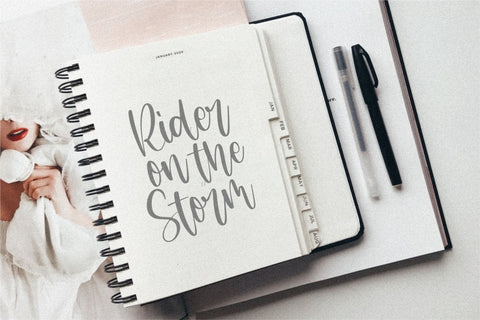 JANUARY 2020
Rider
on the
Storm
JAN
FEB
MAR
APR
MAY
JUN